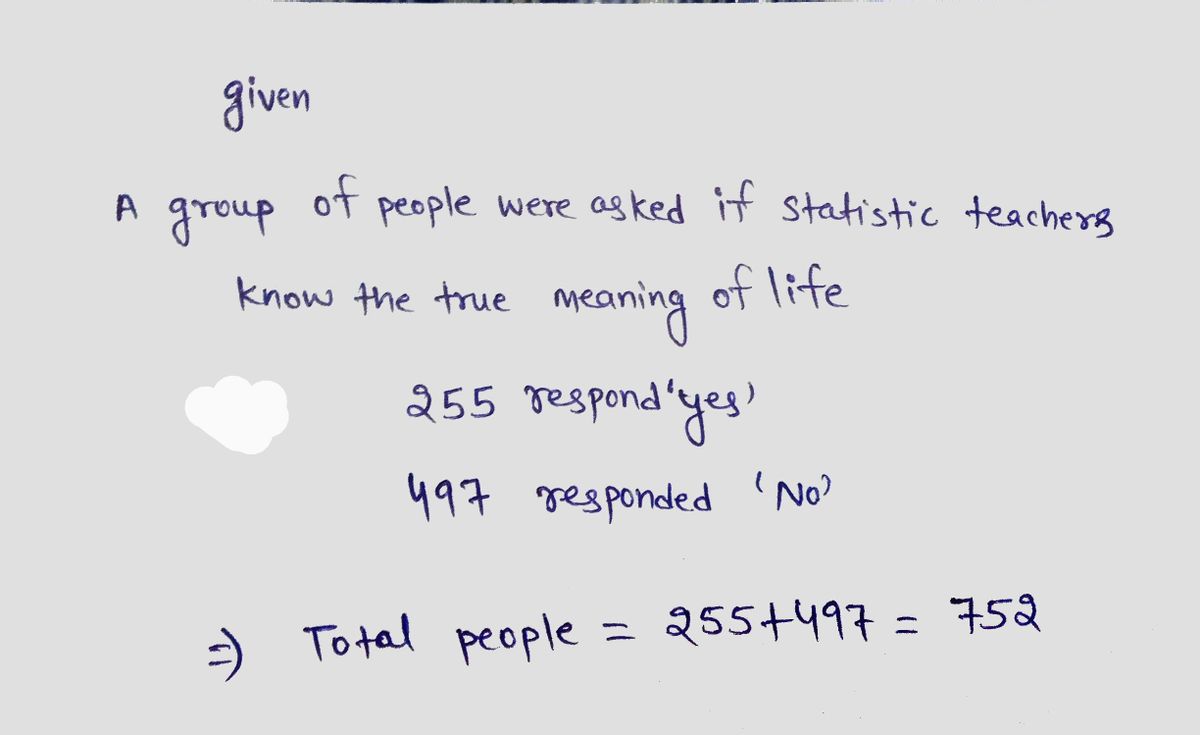 given
A group of people were asked if statistic teachers
know the true meaning of life
255 respond 'yes'
497 responded 'No'
=) Total people = 255+497 = 752